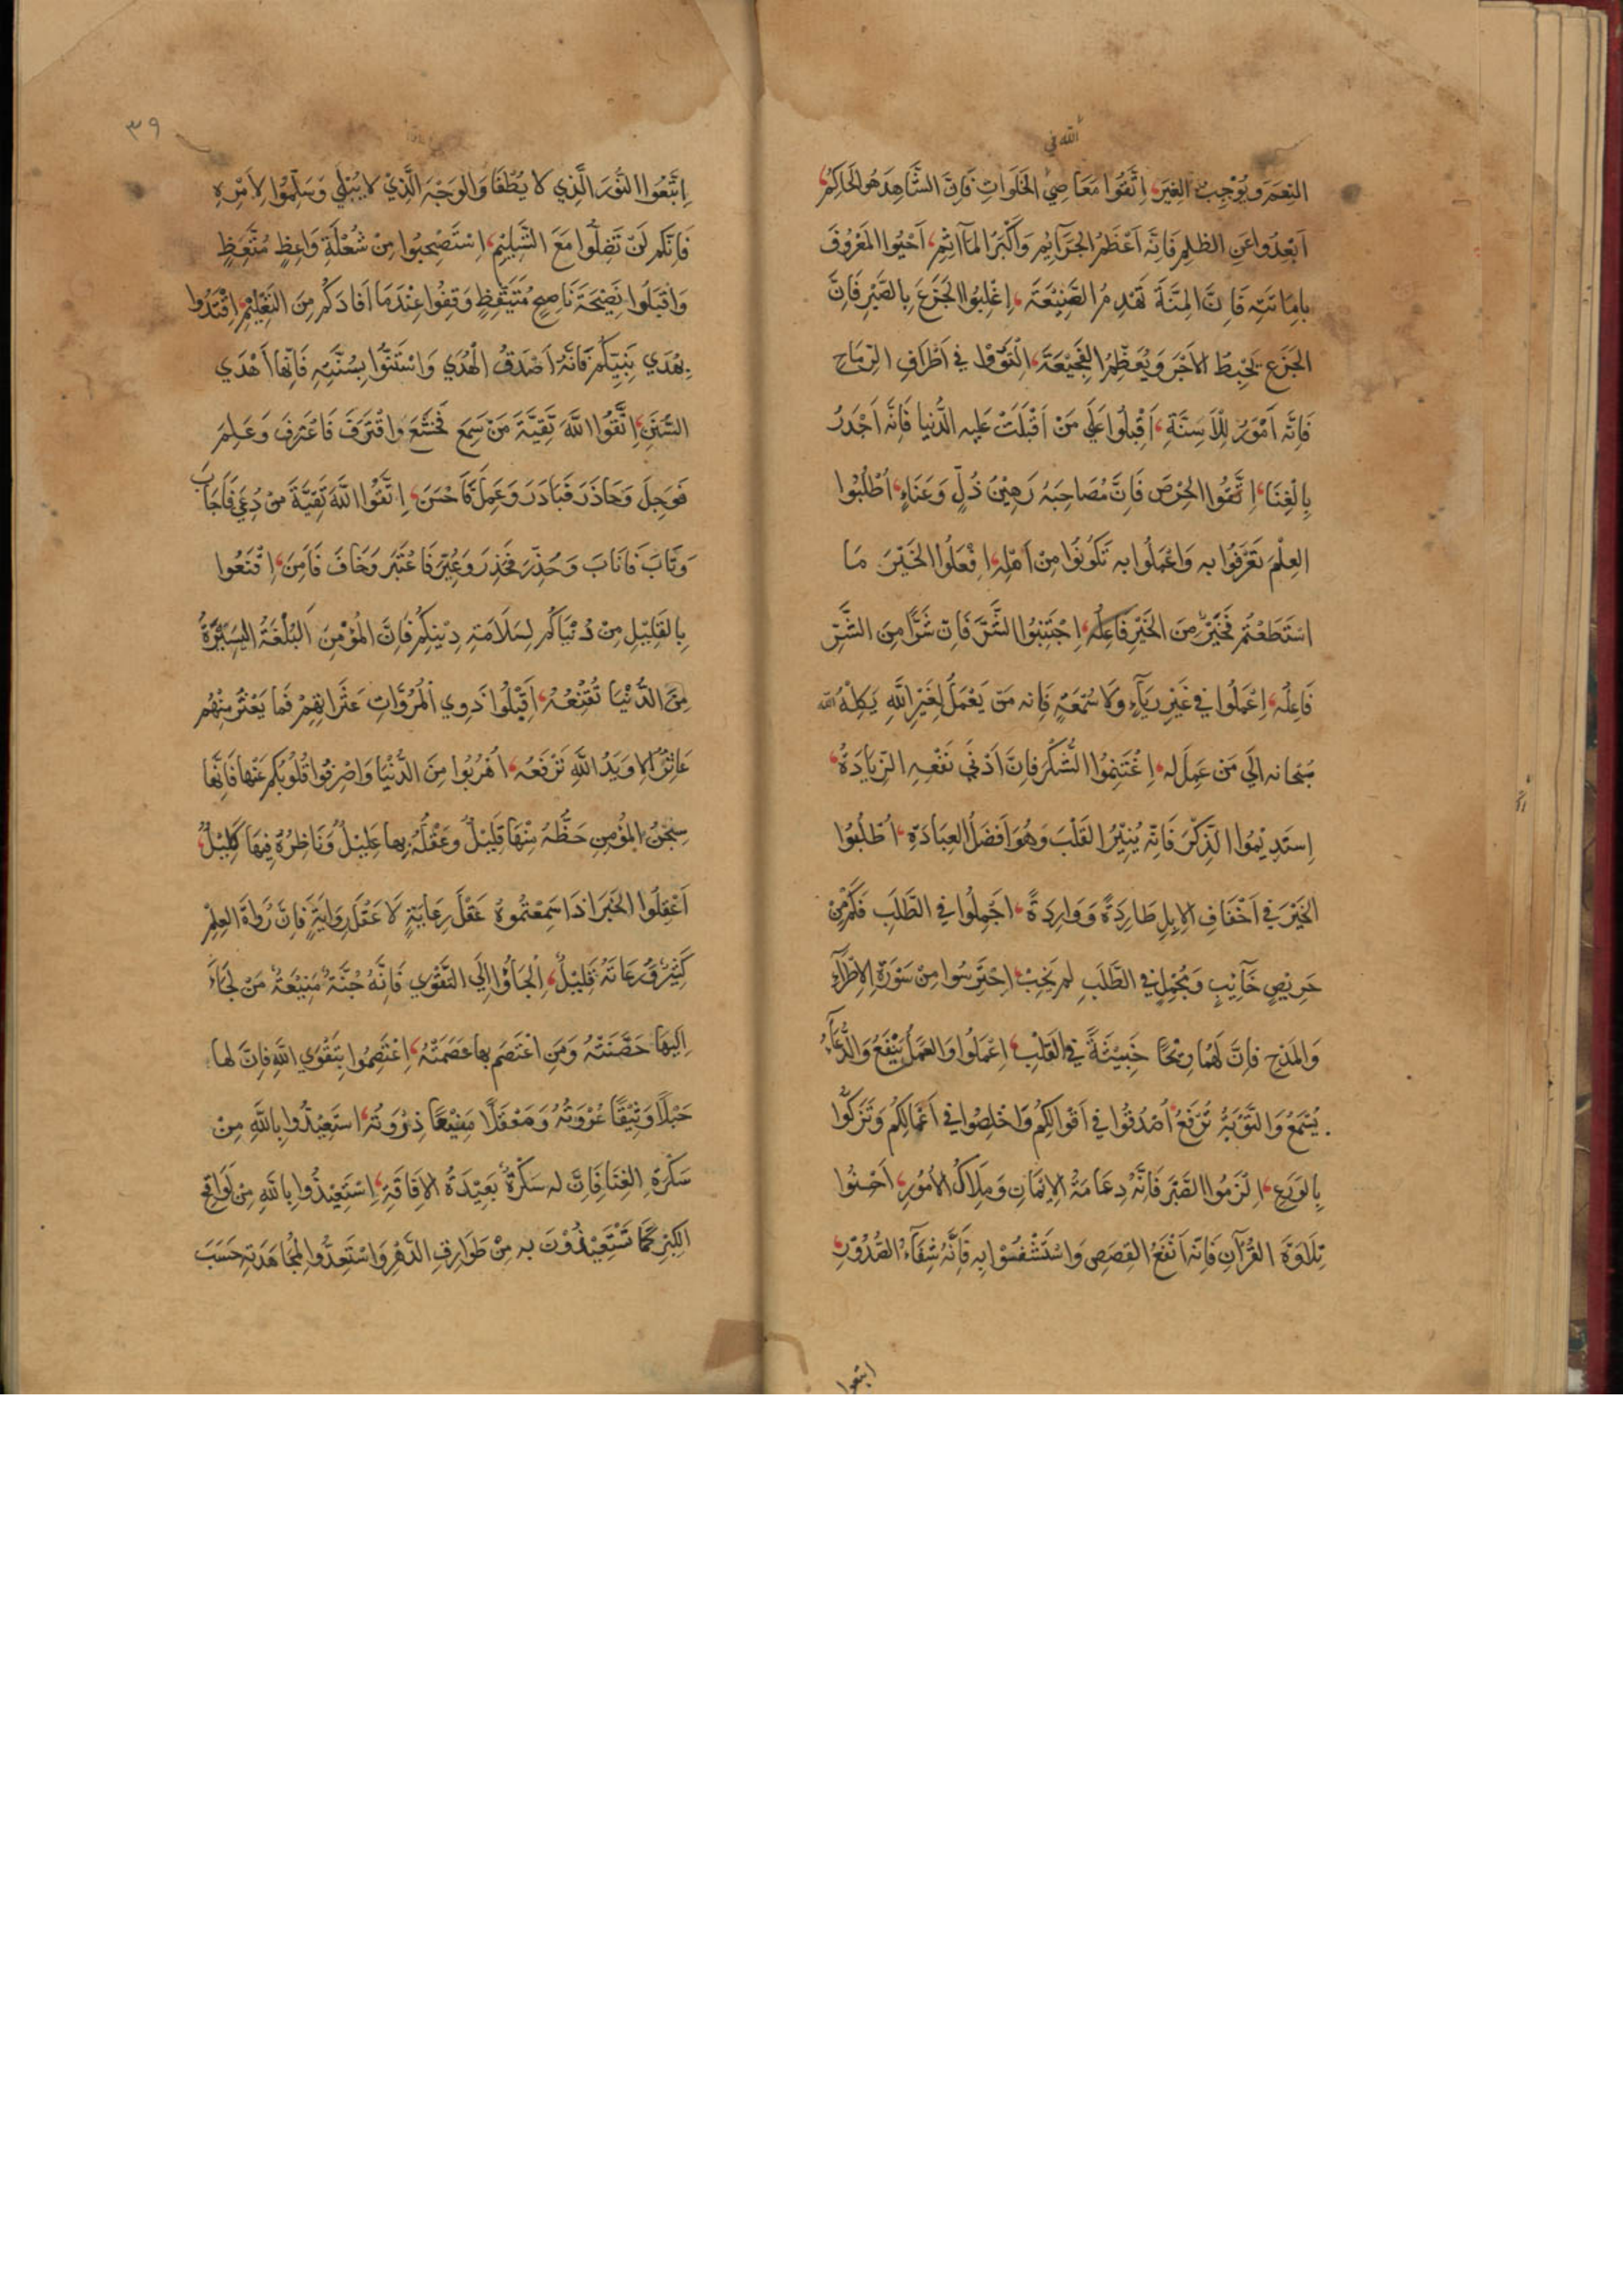 الله في
النِعَمَ وَيُوْجِبُ الغِيَرَ، اِتَّقُوا مَعَاصِيَ الخَلَوَاتِ فَاِنَّ الشَّاهِدَ هُوَ الحَاكِمُ،
اَبْعِدُوا عَنِ الظلمِ فَاِنَّه اَعْظَمُ الجَرَآئِمِ وَاَكْبَرُ المَآثِمِ، اَحْيُوا المَعْرُوفَ
بِاِمَاتَتِه فَاِنَّ المِنَّةَ تَهْدِمُ الصَّنِيْعَةَ، اِغْلِبُوا الجَزَعَ بِالصَّبْرِ فَاِنَّ
الجَزَع يُحْبِطُ الاَجْرَ وَيُعَظِّمُ الفَجِيْعَةَ، اِلْتَوُوْا في اَطْرَافِ الرِّمَاحِ
فَاِنَّه اَمْوَرُ لِلْاَسِنَّةِ، اَقْبِلُوا عَلَي مَنْ اَقْبَلَتْ عَلَيه الدُّنيا فَاِنَّه اَجْدَرُ
بِالْغِنَا، اِتَّقُوا الحِرْصَ فَاِنَّ مُصَاحِبَهُ رَهِيْنُ ذُلٍّ وَعَنَاءٍ، اُطْلُبُوا
العِلْمَ تُعْرَفُوا به وَاعْمَلُوا به تَكُونُوا مِنْ اَهْلِه، اِفْعَلُوا الخَيْرَ مَا
اسْتَطَعْتُم فَخَيْرٌ مِنَ الخَيْرِ فَاعِلُهُ، اِجْتَنِبُوا الشَّرَّ فَاِنَّ شَرًّا مِنَ الشَّرِّ
فَاعِلُه، اِعْمَلُوا في غَيْرِ رِيَآءٍ وَلَا سُمْعَةٍ فَاِنه مَن يَعْمَلْ لِغَيْرِ اللّهِ يَكِلْهُ الله
سُبْحانه الَي مَن عَمِلَ له، اِغْتَنِمُوا الشُّكْرَ فاِنَّ اَدْنَي نَفْعِهِ الزِّيَادَةُ،
اِستَدِيْمُوا الذِّكْرَ فَاِنَّه يُنِيْرُ القَلْبَ وَهُوَ اَفْضَلُ العِبَادَةِ، اُطْلُبُوا
الخَيْرَ في اَخْفَافِ الاِبِلِ طَارِدَةً وَوَارِدَةً، اَجْمِلُوا فِي الطَّلَبِ فَكَمْ مِنْ
حَرِيْصٍ خَآئِبٍ وَمُجْمِلٍ فِي الطَّلَبِ لم يَخِبْ، اِحْتَرِسُوا مِنْ سَوْرَةِ الاِطْرَآءِ
وَالمَدْحِ فَاِنَّ لَهُمَا رِيْحًا خَبِيْثَةً فِي القَلْبِ، اِعْمَلُوا وَالعَمَلُ يَنْفَعُ وَالدُّعَآءُ
يُسْمَعُ وَالتَّوْبَةُ تُرْفَعُ، اُصْدُقُوا في اَقْوَالِكُمْ وَاَخْلِصُوا فِي اَعْمَالِكُمْ وَتَزَكَّوْا
بِالوَرَعِ، اِلْزَمُوا الصَّبْرَ فَاِنَّهُ دِعَامَةُ الاِيْمَانِ وَمِلَاكُ الاُمُوْرِ، اَحْسِنُوا
تِلَاوَةَ القُرْآنِ فَاِنَّه اَنْفَعُ القِصَصِ وَاسْتَشْفُوْا بِهِ فَاِنَّهُ شِفَآءُ الصُّدُوْرِ،
اتبعوا
٣٩
اِتَّبِعُوا النُّوْرَ الَّذِي لا يُطْفَا وَالوَجْهَ الَّذِيْ لا يُبْلَي وَسَلِّمُوْا لِاَمْرِه
فَاِنَّكم لَنْ تَضِلُّوا مَعَ التَّسْلِيْمِ، اِسْتَصْبِحُوا مِنْ شُعْلَةِ وَاعِظٍ مُتَّعِظٍ
وَاقْبَلُوا نَصِيْحَةَ نَاصِحٍ مُتَيَقِّظٍ وَقِفُوا عِنْدَمَا اَفَادَكُم مِنَ التَعْلِيْمِ، اِقْتَدُوا
بِهُدَي نَبِيِّكُمْ فَاِنَّهُ اَصْدَقُ الْهُدَي وَاسْتَنُّوْا بِسُنَّتِهِ فَاِنَّها اَهْدَي
السُّنَنِ، اِتَّقُوا اللّهَ تَقِيَّةَ مَنْ سَمِعَ فَخَشَعَ وَاقْتَرَفَ فَاعْتَرَفَ وَعَلِمَ
فَوَجِلَ وَحَاذَرَ فَبَادَرَ وَعَمِلَ فَاَحْسَنَ، اِتَّقُوْا اللّهَ تَقِيَّةَ مَنْ دُعِيَ فَاَجَابَ
وَتَابَ فَاَنَابَ وَحُذِّرَ فَحَذِرَ وَعُبِّرَ فَاعْتَبَرَ وَخَافَ فَاَمِنَ، اِقْنَعُوا
بِالقَلِيْلِ مِنْ دُنْيَاكُم لِسَلَامَةِ دِيْنِكُمْ فَاِنَّ المُؤْمِنَ البُلْغَةُ اليَسِيْرَةُ
مِنَ الدُّنْيَا تُقْنِعُهُ، اَقِيْلُوا ذَوِي الْمُرُوَّاتِ عَثَرَاتِهِمْ فَما يَعْثَرُ مِنْهُمْ
عَاثِرٌ اِلا وَيَدُ اللّهِ تَرْفَعُه، اُهْرُبُوا مِنَ الدُّنْيَا وَاصْرِفُوا قُلُوْبَكُم عَنْها فَاِنَّها
سِجْنُ المُؤمِنِ حَظُّهُ مِنْهَا قَلِيْلٌ وَعَقْلُهُ بِها عَلِيْلٌ وَنَاظِرُهُ فِيْهَا كَلِيْلٌ،
اَعْقِلُوا الخَبَرَ اِذَا سَمِعْتُموهُ عَقْلَ رِعَايَةٍ لَا عَقْلَ رِوَايَةٍ فَاِنَّ رُوَاةَ العِلْمِ
كَثِيْرٌ وَرُعَاتَهُ قَلِيْلٌ، اِلْجَأُوْا اِلَي التَقْوَي فَاِنَّهُ جُنَّةٌ مَنِيْعَةٌ مَنْ لَجَاءَ
اِلَيهَا حَصَّنَتْهُ وَمَنِ اعْتَصَمَ بها عَصَمَتْهُ، اِعْتَصِمُوا بِتَقْوَي اللّهِ فَاِنَّ لها
حَبْلًا وَثِيْقًا عُرْوَتُهُ وَمَعْقِلًا مَنِيْعًا ذِرْوَتُهُ، اِسْتَعِيْذُوا بِاللّهِ مِنْ
سَكْرَةِ الغِنَا فَاِنَّ لهِ سَكْرَةً بَعِيْدَةُ الاِفَاقَةِ، اِسْتَعِيْذُوا بِاللّهِ مِنْ لَوَاقِحِ
الكِبْرِ كَمَا تَسْتَعِيْذُوْنَ بِه مِنْ طَوَارِقِ الدَّهْرِ وَاسْتَعِدُّوا لِمُجَاهَدَتِهِ حَسَبَ